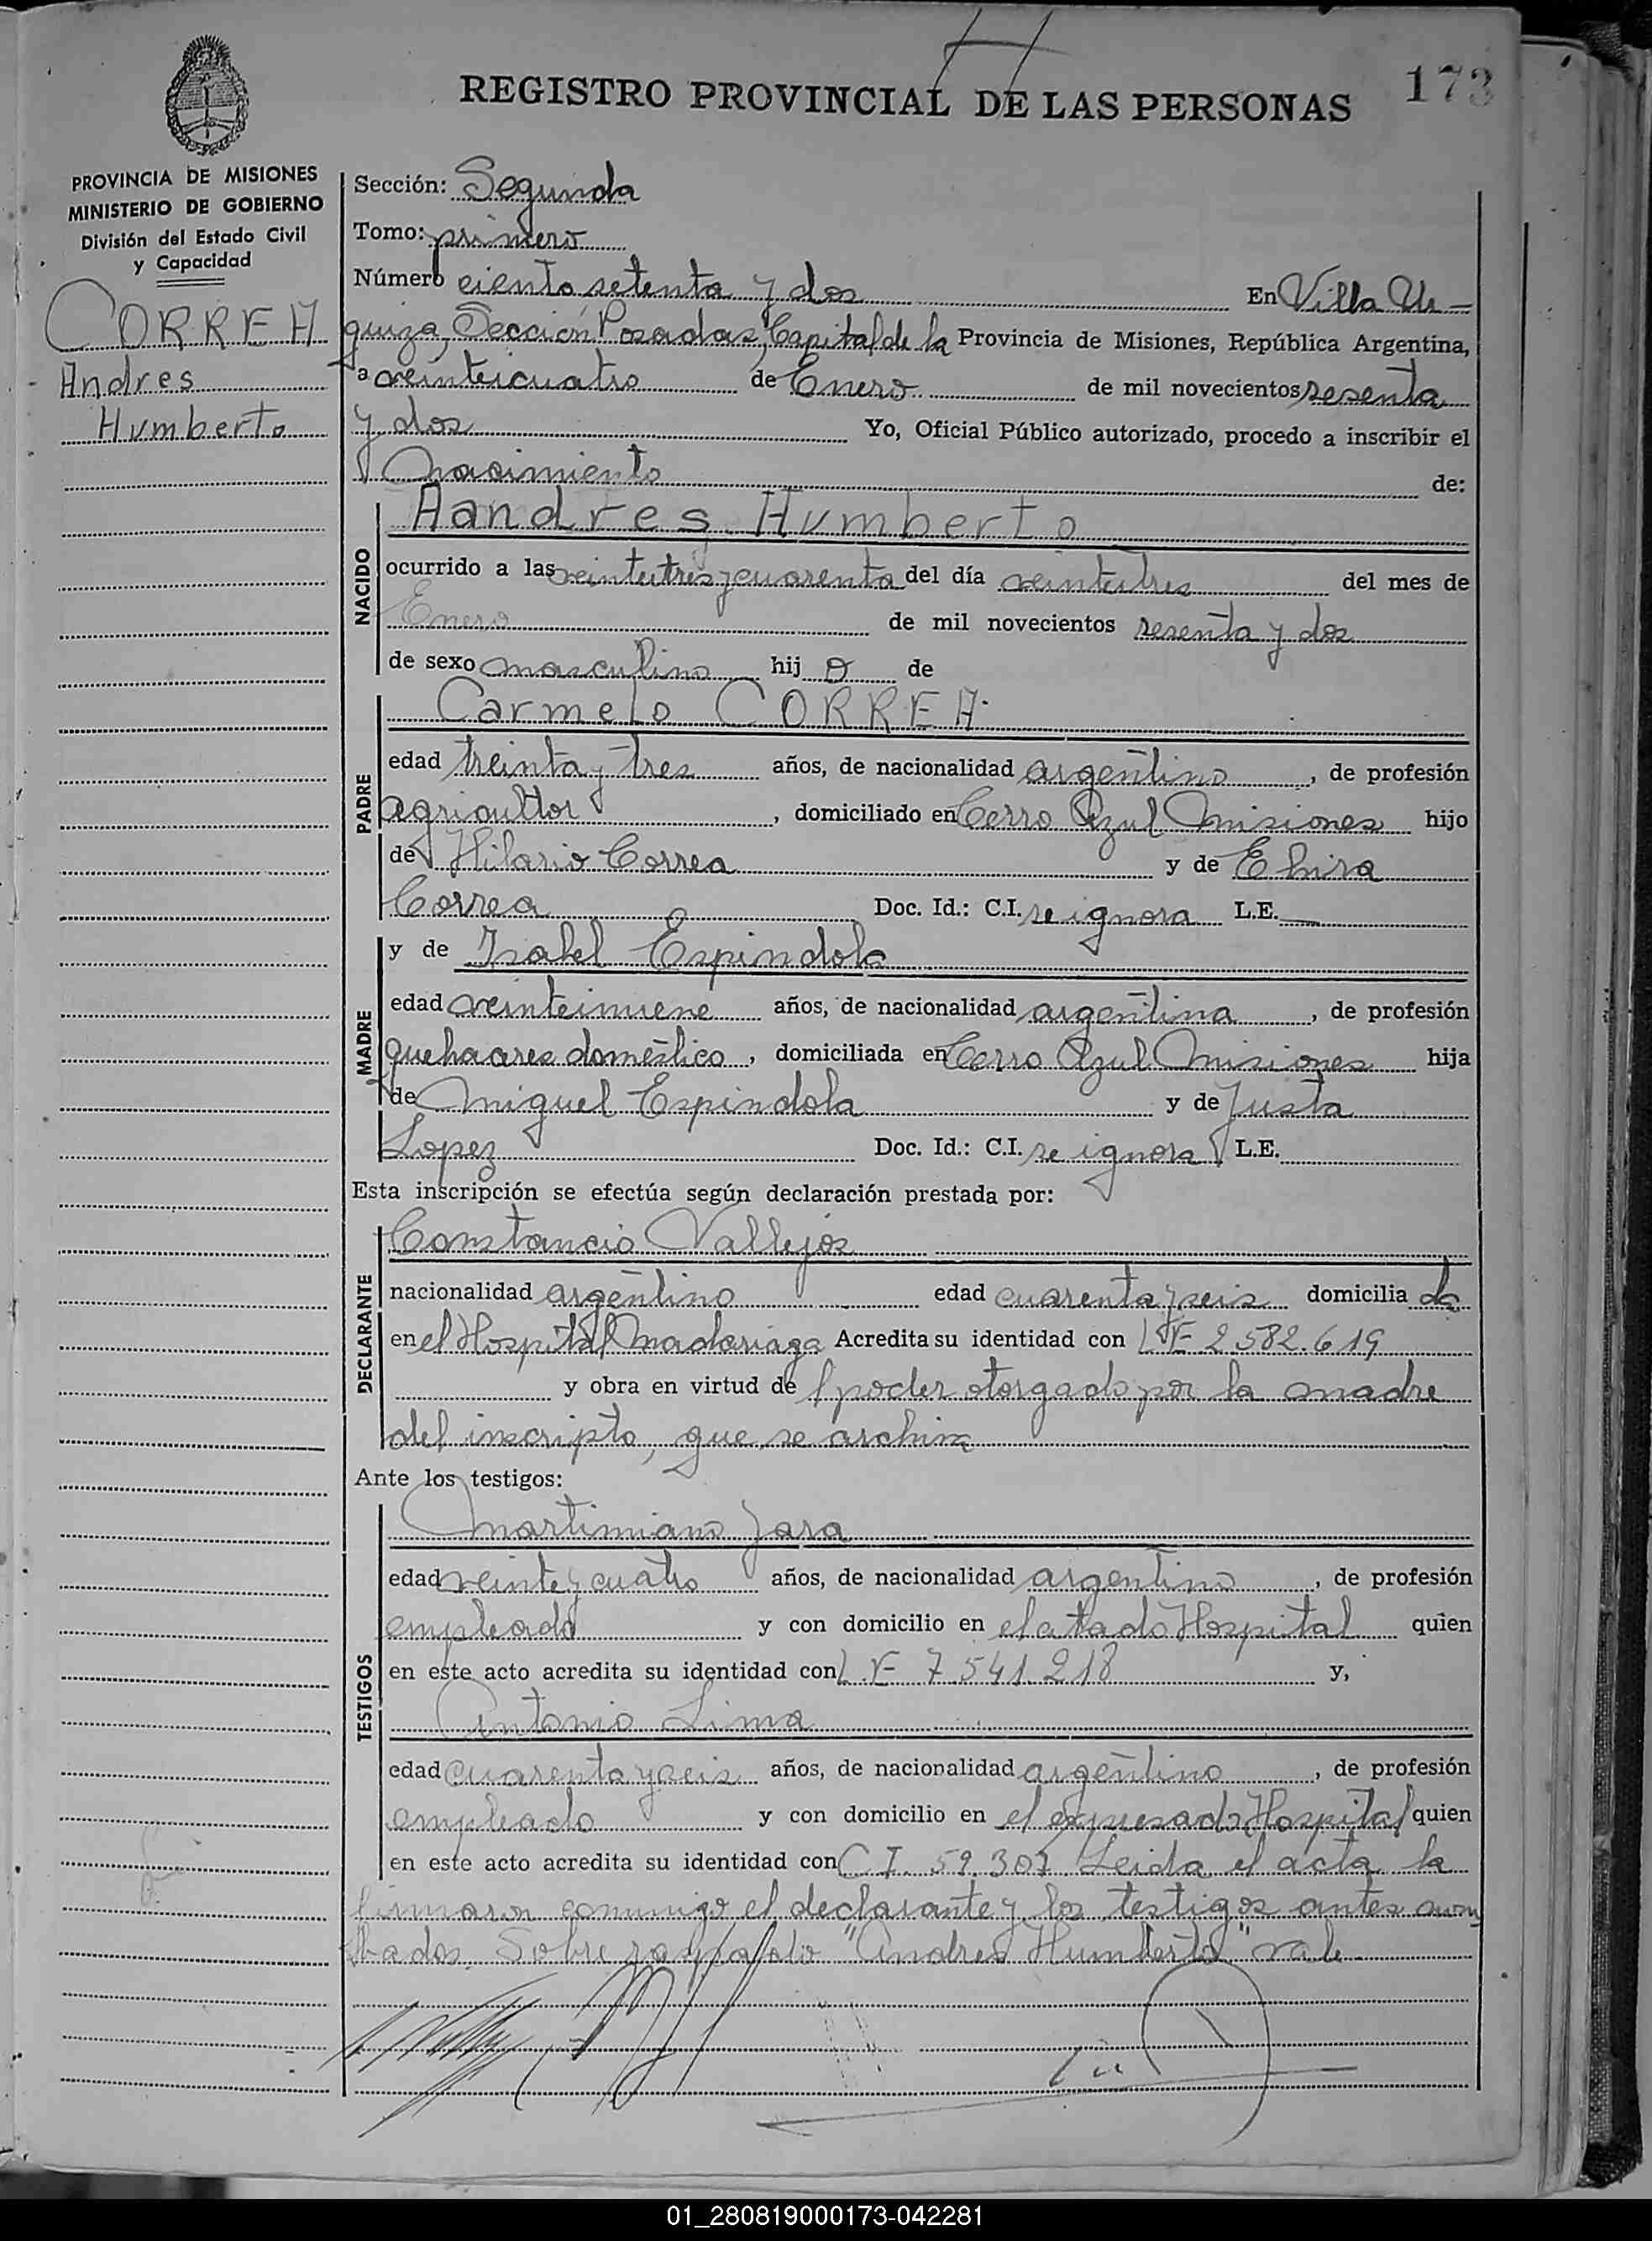 173
REGISTRO PROVINCIAL DE LAS PERSONAS
PROVINCIA DE MISIONES
MINISTERIO DE GOBIERNO
División del Estado Civil
y Capacidad
CORREA
Andres
Humberto
Sección: Segunda
Tomo: primero
Número ciento setenta y dos En Villa Ur-
quiza, Sección Posadas, Capital de la Provincia de Misiones, República Argentina,
a veinticuatro de Enero de mil novecientos sesenta
y dos Yo, Oficial Público autorizado, procedo a inscribir el
Nacimiento de:
NACIDO
Aandres Humberto
ocurrido a las veintitres y cuarenta del día veintitres del mes de
Enero de mil novecientos sesenta y dos
de sexo masculino hij o de
PADRE
Carmelo CORREA
edad treinta y tres años, de nacionalidad argentino, de profesión
agricultor, domiciliado en Cerro Azul Misiones hijo
de Hilario Correa y de
Correa Doc. Id.: C.I. se ignora L.E. —
MADRE
y de Isabel Espindola
edad veintinueve años, de nacionalidad argentina, de profesión
quehaceres doméstico, domiciliada en Cerro Azul Misiones hija
de Miguel Espindola y de Justa
Lopez Doc. Id.: C.I. se ignora L.E.
Esta inscripción se efectúa según declaración prestada por:
DECLARANTE
Constancio Vallejos
nacionalidad argentino edad cuarenta y seis domicilia do
en el Hospital Madariaga Acredita su identidad con L E 2.582.619
y obra en virtud de l poder otorgado por la madre
del inscripto, que se archiva
Ante los testigos:
TESTIGOS
Martimiano Jara
edad veinte y cuatro años, de nacionalidad argentino, de profesión
empleado y con domicilio en el citado Hospital quien
en este acto acredita su identidad con L.E 7.541.218 y,
Antonio Lima
edad cuarenta y seis años, de nacionalidad argentino, de profesión
empleado y con domicilio en el expresado Hospital quien
en este acto acredita su identidad con C I. 59.307 Leida el acta la
firmaron conmigo el declarante y los testigos antes
Sobre raspado "Andres Humberto" vale
01_280819000173-042281